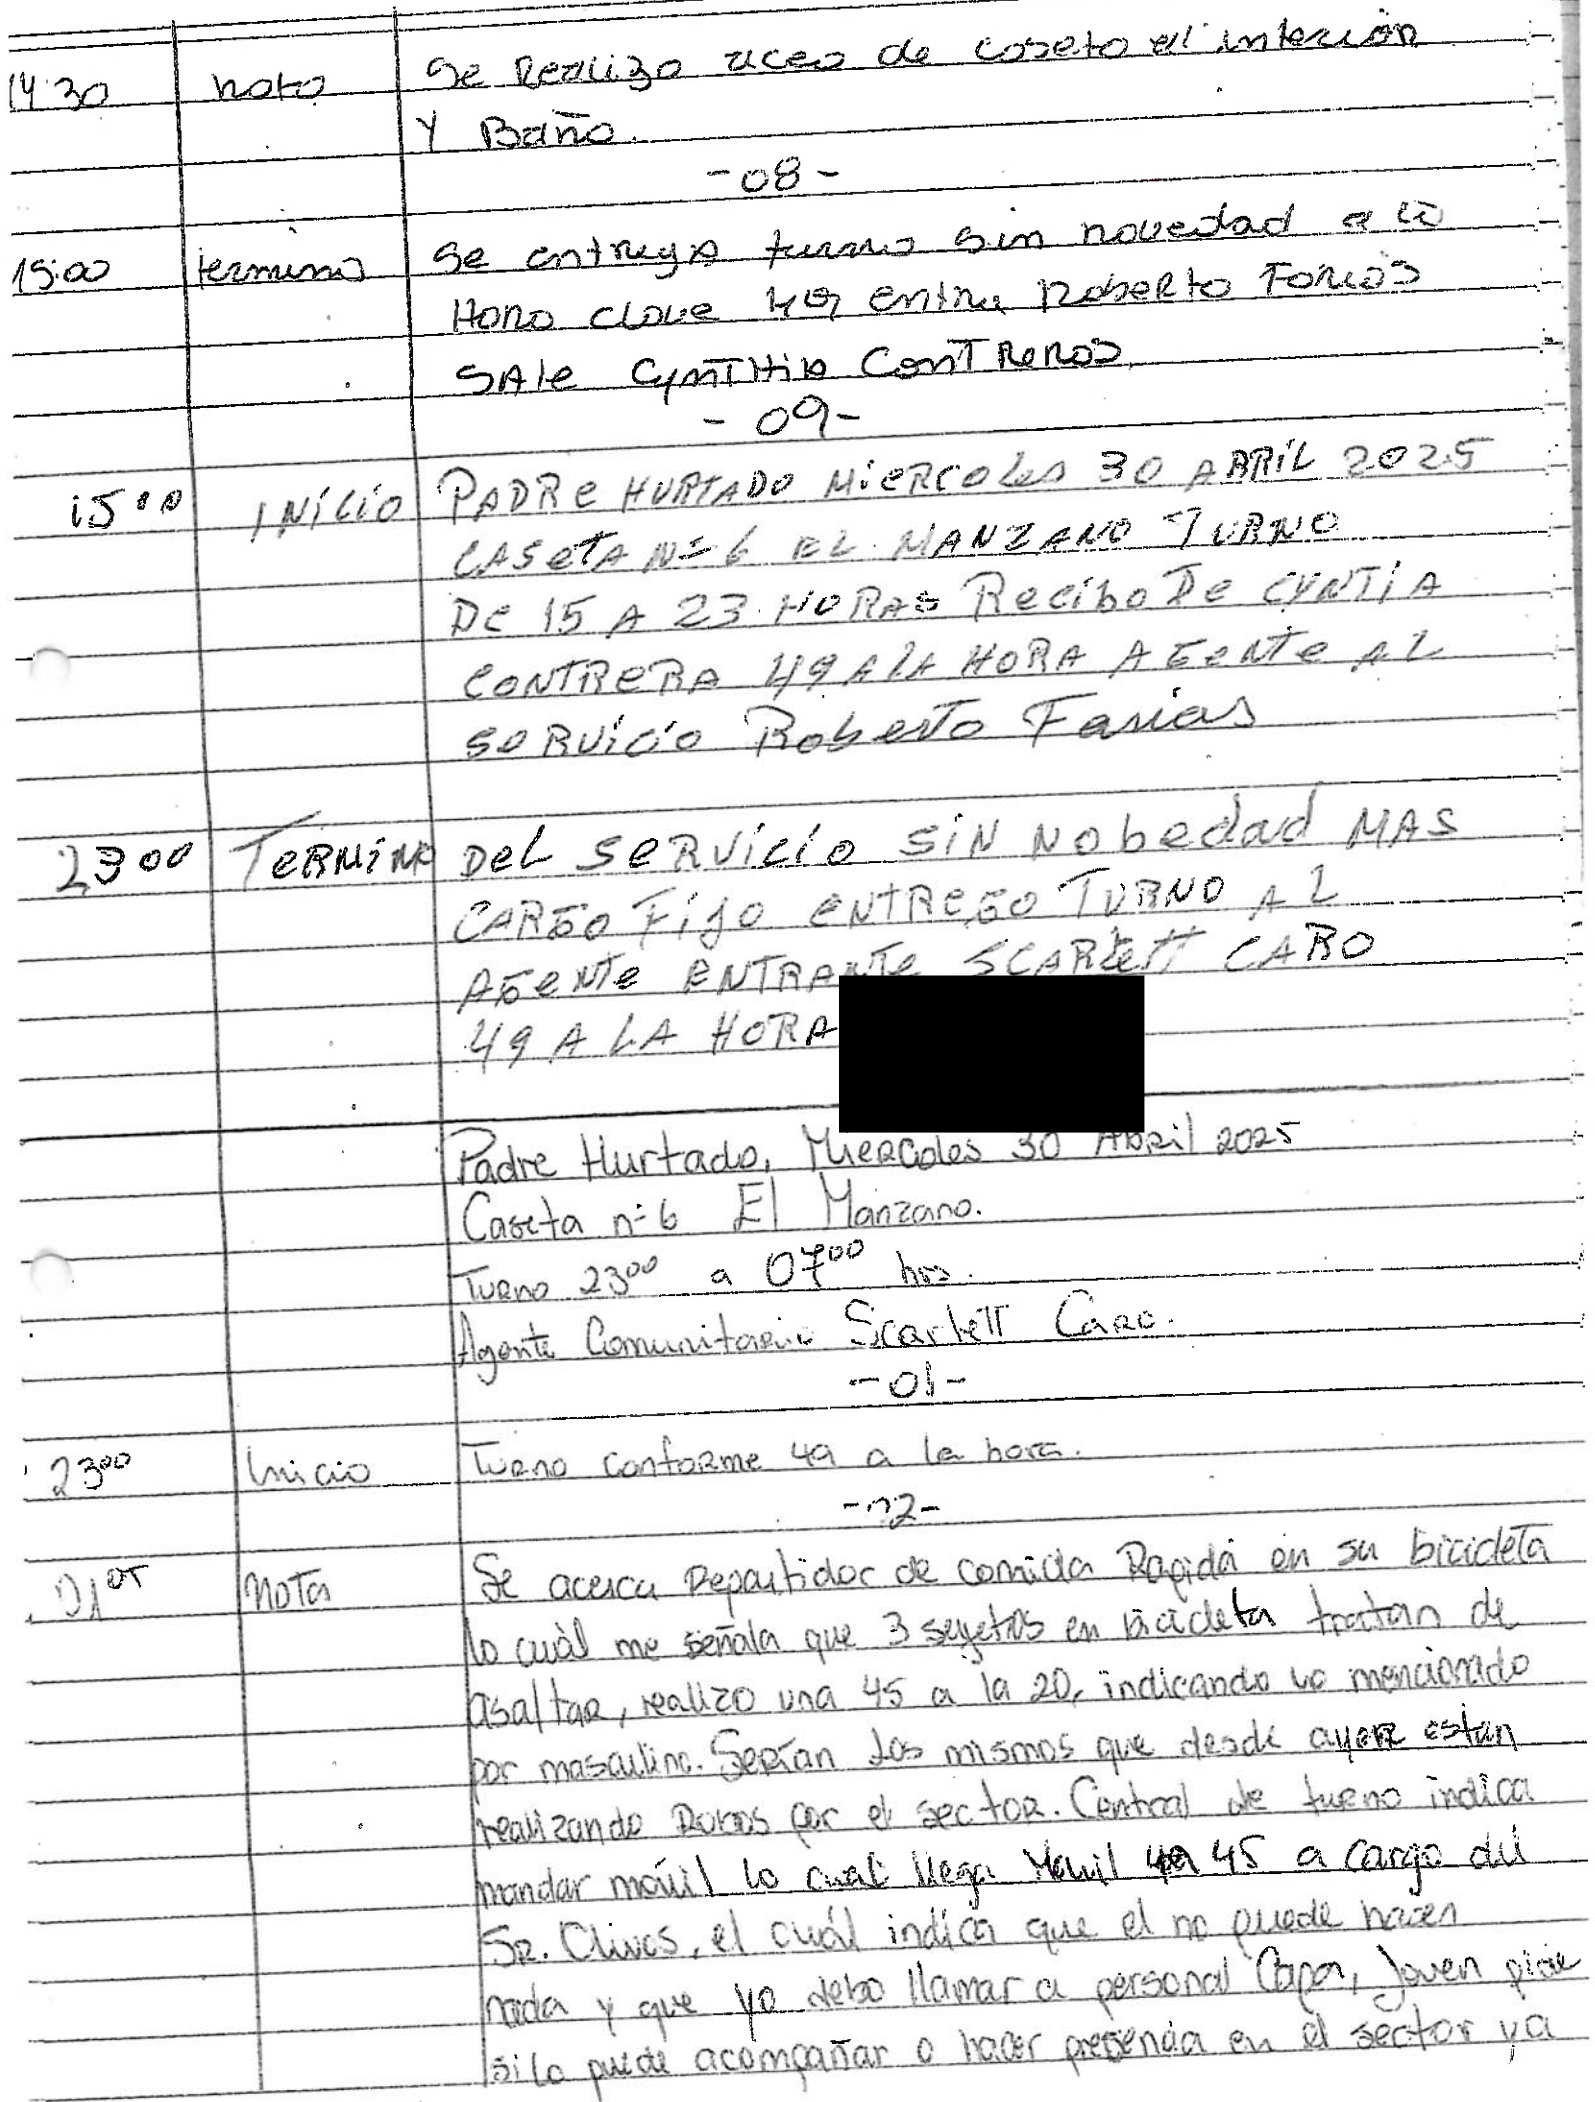 14:30 nota Se Realizo aceo de caseta al interior
Y Baño.
-08-
15:00 termino Se entrega turno sin novedad a la
Hora clave 49 entra Roberto Farias
SALe CynTHia ConTReRas
-09-
15:00 INICIO PADRe HURTADO MieRcoles 30 ABRiL 2025
CASeTA N=6 EL MANZANO TURNO
De 15 A 23 HORAS Recibo De CYNTiA
CONTReRA 49 A LA HORA AGeNTe AL
SeRVicio Roberto Farias
23 00 TeRMiNo DeL SeRVicio SiN Nobedad MAS
CARGO Fijo eNTReGO TURNO AL
AGeNTe ENTRANTe SCARLeTT CARO
49 A LA HORA
Padre Hurtado, Miercoles 30 Abril 2025
Caseta n=6 El Manzano.
Turno 2300 a 0700 hrs.
Agente Comunitario Scarlett Caro.
-01-
23 00 Inicio Turno conforme 49 a la hora.
-02-
01 05 nota Se acerca Repartidor de comida Rapida en su bicicleta
lo cuàl me señala que 3 sujetos en bicicleta tratan de
asaltar, realizo una 45 a la 20, indicando lo mencionado
por masculino. Serían los mismos que desde ayer estan
realizando Robos por el sector. Central de turno indica
mandar móvil lo cual llega Movil 45 a cargo del
Sr. Clivos, el cuál indica que el no puede hacer
nada y que yo debo llamar a personal Capa, Joven pide
si lo puede acompañar o hacer presencia en el sector ya